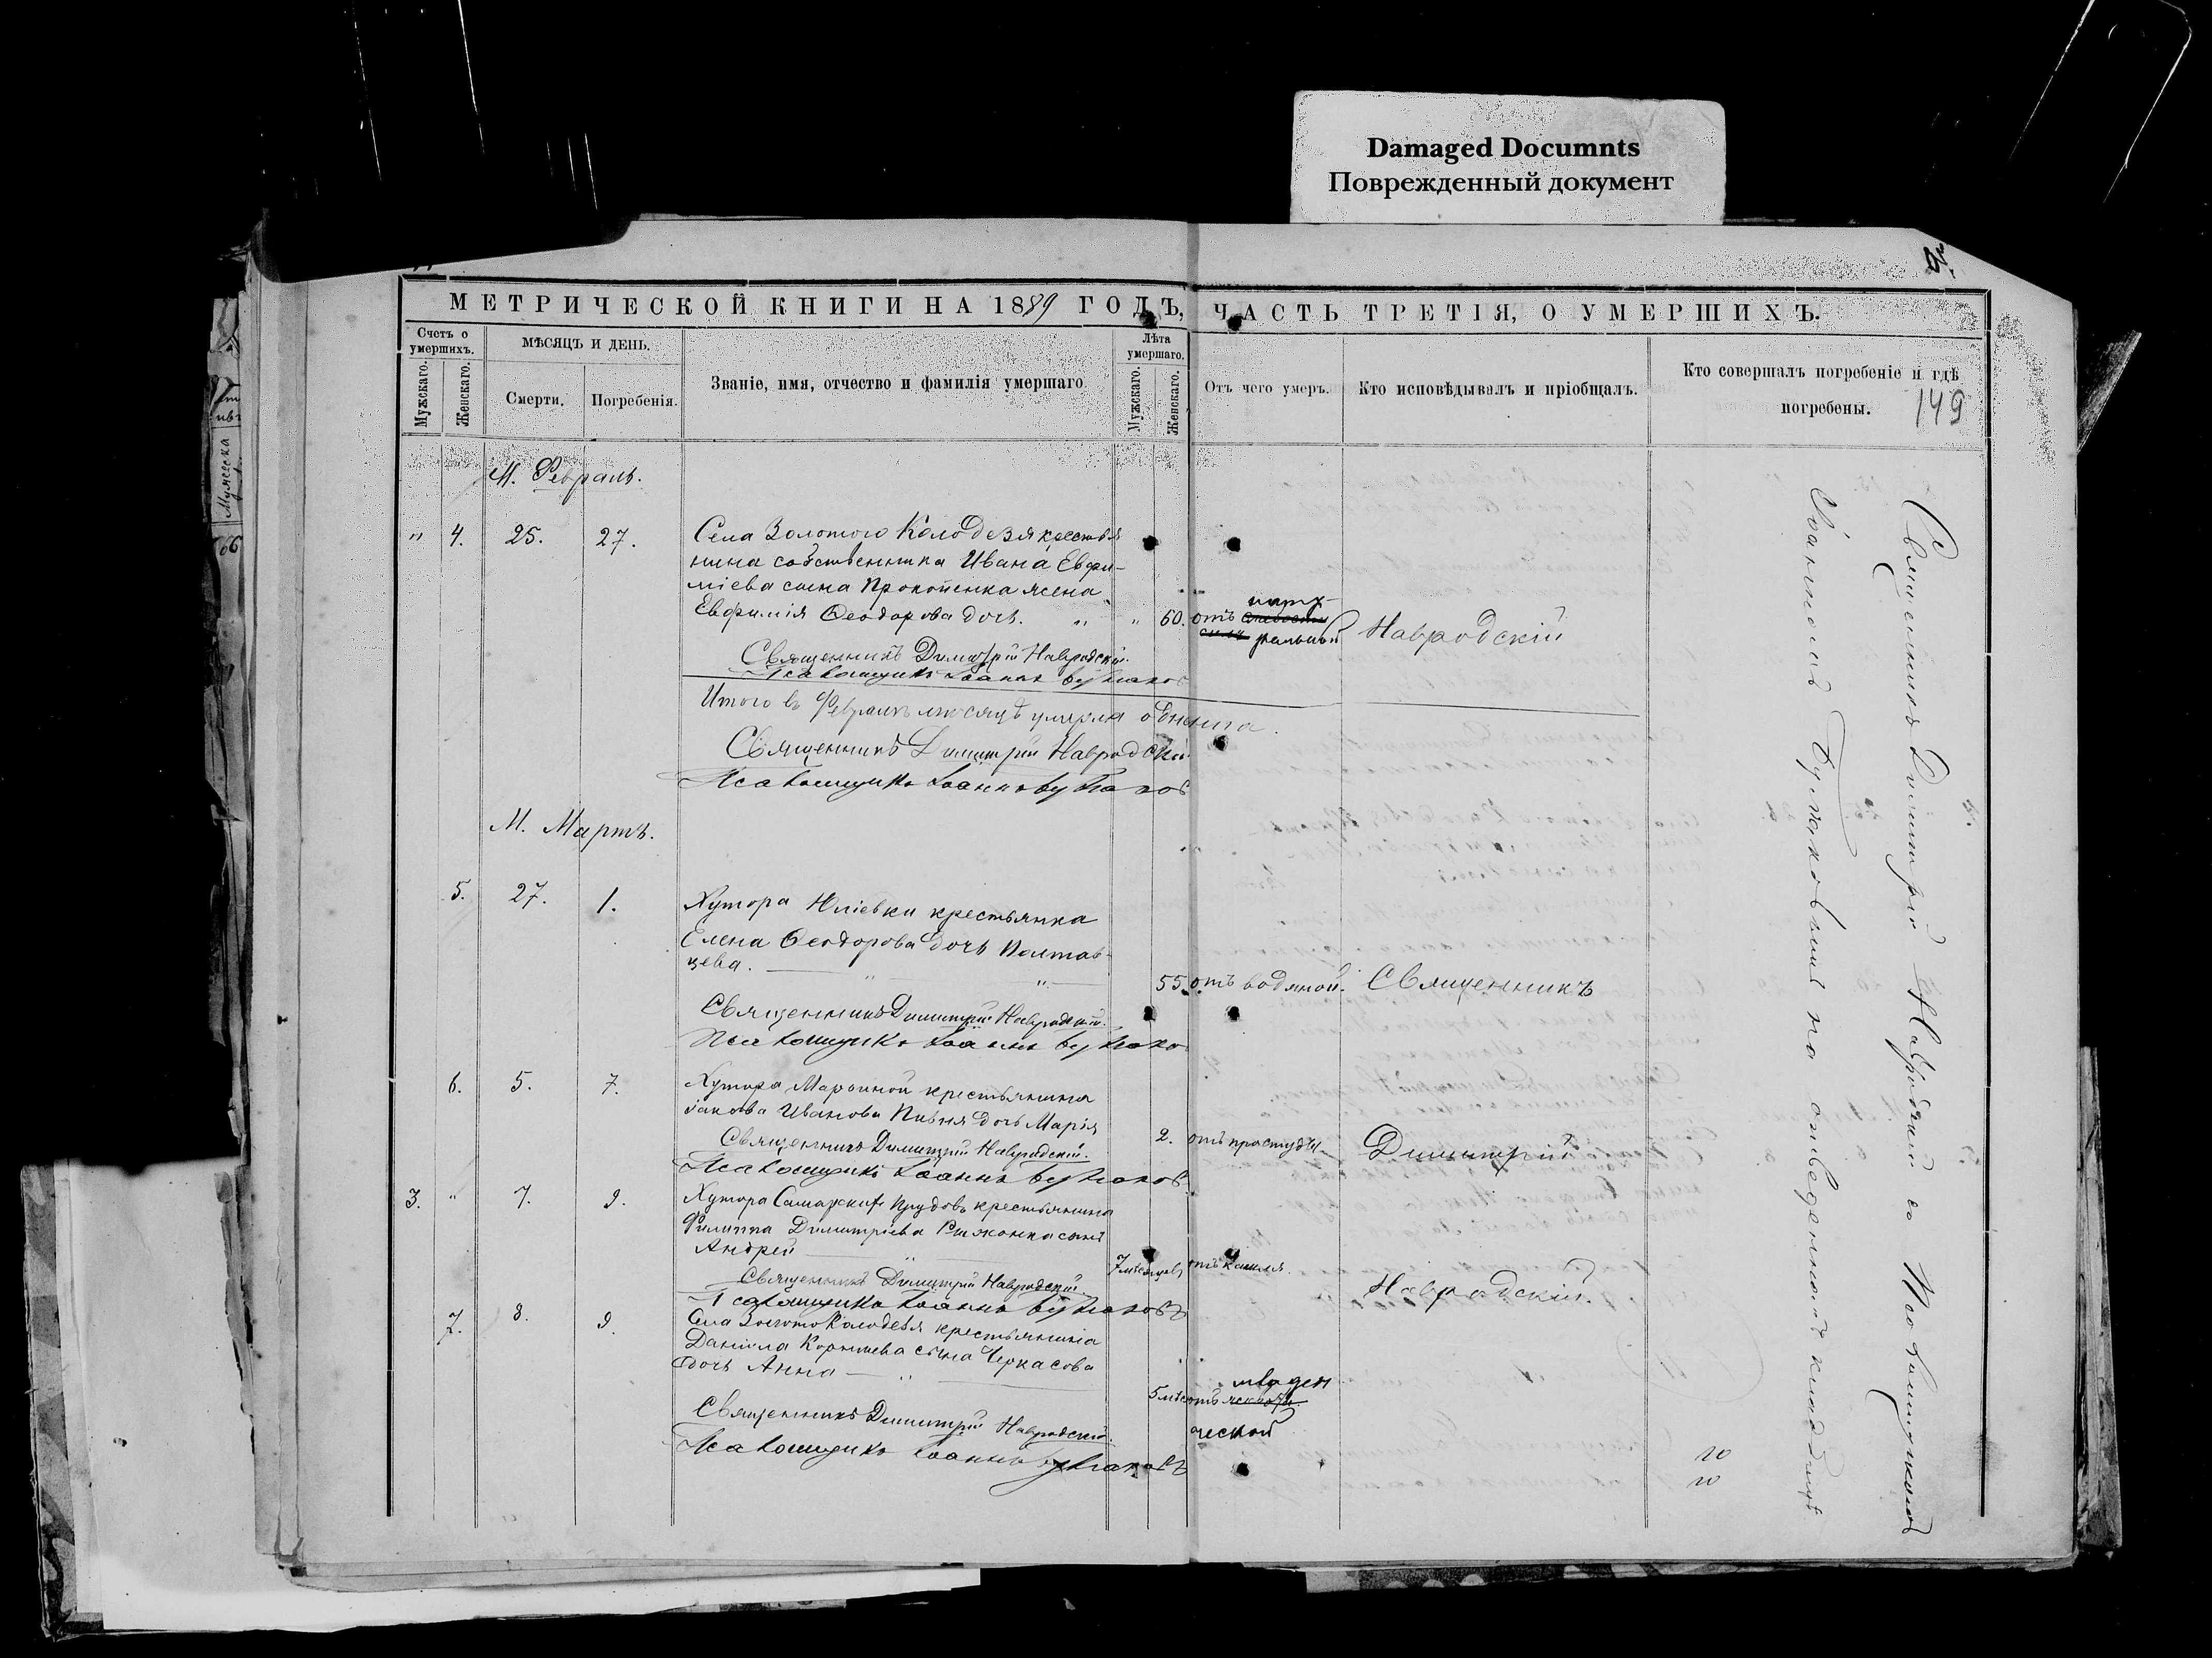 Damaged Documnts
Поврежденный документ
МЕТРИЧЕСКОЙ КНИГИ НА 1889 ГОДЪ, ЧАСТЬ ТРЕТІЯ, О УМЕРШИХЪ.
Счетъ о умершихъ.
Мужскаго.
Женскаго.
МѢСЯЦЪ И ДЕНЬ.
Смерти.
Погребенія.
Званіе, имя, отчество и фамилія умершаго.
Лѣта умершаго.
Мужскаго.
Женскаго.
Отъ чего умеръ.
Кто исповѣдывалъ и пріобщалъ.
Кто совершалъ погребеніе и гдѣ
погребены.
149
М. Февраль.
" 4. 25. 27. Села Золотого Колодезя крестья
нина собственника Ивана Евфи-
міева сына Прокопенка жена
Евфимія Ѳеодорова дочь. " " 60. отъ нату-
ральной Навродскій
Священникъ Димитрій Навродскій.
Псаломщикъ Іоаннъ
Итого въ Февралѣ мѣсяцѣ умерла одна
Священникъ Димитрій Навродскій
Псаломщикъ Іоаннъ
М. Мартъ.
5. 27. 1. Хутора крестьянка
Елена Ѳеодорова дочь Полтав-
цева. " " 55. отъ водяной. Священникъ
Священникъ Димитрій Навродскій.
Псаломщикъ Іоаннъ
6. 5. 7. Хутора крестьянина
Іакова Иванова Пивня дочь Марія
2. отъ простуды. Димитрій
Священникъ Димитрій Навродскій.
Псаломщикъ Іоаннъ
3. " 7. 9. Хутора Самарскихъ Прудовъ крестьянина
Филиппа Димитріева сынъ
Андрей " 7 мѣсяцевъ отъ кашля.
Священникъ Димитрій Навродскій Навродскій.
Псаломщикъ Іоаннъ
7. 8. 9. Села Золото Колодезя крестьянина
Даніила Корнѣева сына Черкасова
дочь Анна " 5 мѣс отъ младен
ческой
Священникъ Димитрій Навродскій.
Псаломщикъ Іоаннъ
Священникъ Димитрій Навродскій съ Псаломщикомъ
Іоанномъ на отведенномъ кладбищѣ